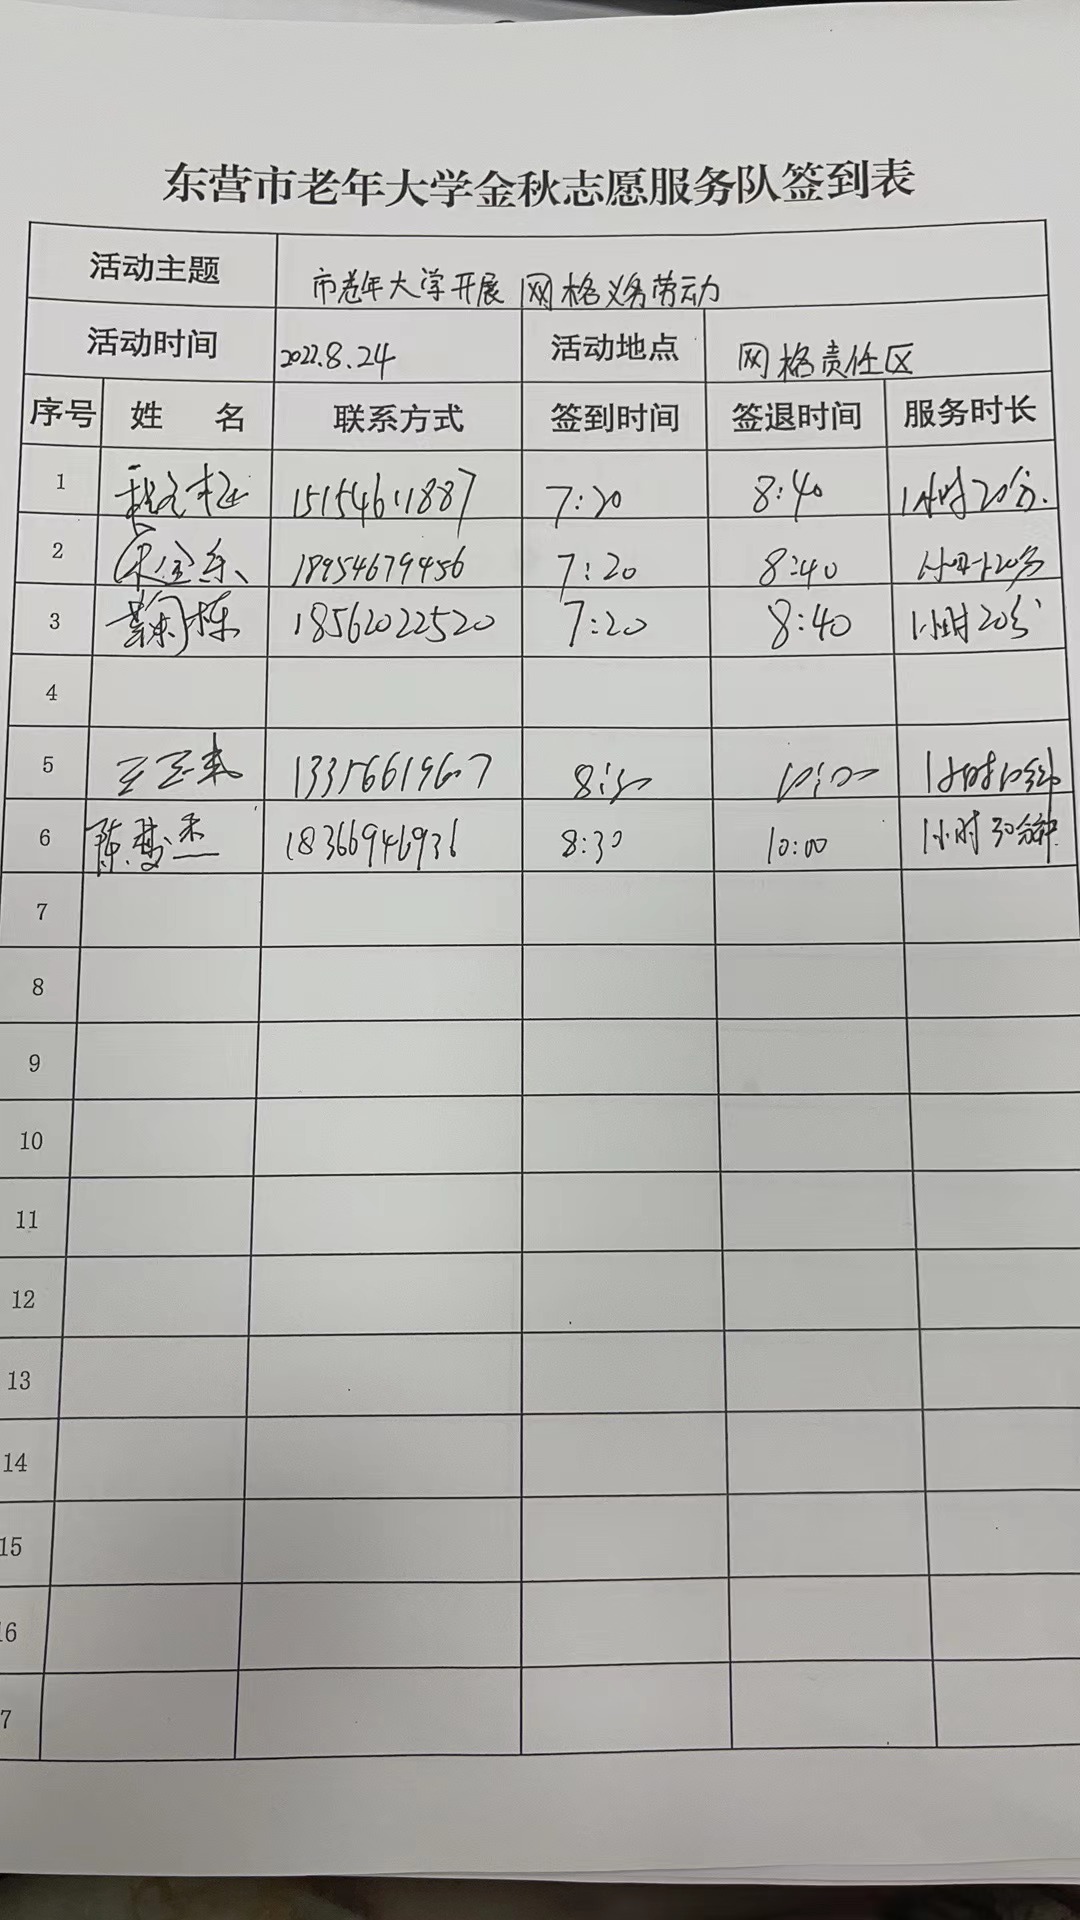 东营市老年大学金秋志愿服务队签到表
活动主题 市老年大学开展网格义务劳动
活动时间 2022.8.24 活动地点 网格责任区
序号 姓 名 联系方式 签到时间 签退时间 服务时长
1 15154611887 7:20 8:40 1小时20分.
2 18954679456 7:20 8:40 1小时20分
3 18562022520 7:20 8:40 1小时20分
4
5 8:50 10:00 1小时10分钟
6 陈梦杰 18366946936 8:30 10:00 1小时30分钟
7
8
9
10
11
12
13
14
15
16
7